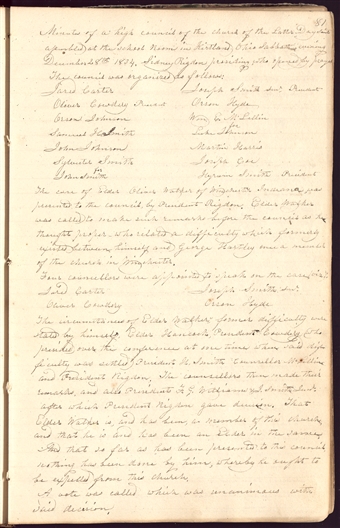 81
Minutes of a high council of the church of the Latter Day Saints
assembled at the school Room in Kirtland, Ohio Sabbath evening
December 28th 1834, Sidney Rigdon presiding, who opened by prayer
The council was organized as follows.
Jared Carter Joseph Smith Sen. President
Oliver Cowdery President Orson Hyde
Orson Johnson Wm E. McLellin
Samuel H. Smith Luke Johnson
John Johnson Martin Harris
Sylvester Smith Joseph Coe
John Smith Hyrum Smith President
The case of Elder Oliver Walker of Winchester Indiana, was
presented to the council, by President Rigdon. Elder Walker
was called to make such remarks before the council as he
thought proper. who related a difficulty which formerly
existed between himself and George Hartley once a member
of the church in Winchester.
Four counsellors were appointed to speak on the case, viz:
Jared Carter Joseph Smith Sen.
Oliver Cowdery Orson Hyde
The circumstances of Elder Walker's former difficulty were
stated by himself, Elder Hancock, President Cowdery (who
presided over the conference at one time when this dif-
ficulty was settled) President H. Smith Counsellor McLellin
and President Rigdon. The counsellors then made their
remarks, and also Presidents F. G. Williams & J. Smith Sen.
after which President Rigdon gave decision, That
Elder Walker is, and has been, a member of this church,
and that he is and has been an Elder in the same.
And that so far as has been presented to this council
nothing has been done by him, whereby he ought to
be expelled from this church.
A vote was called which was unanimous with
said decision.